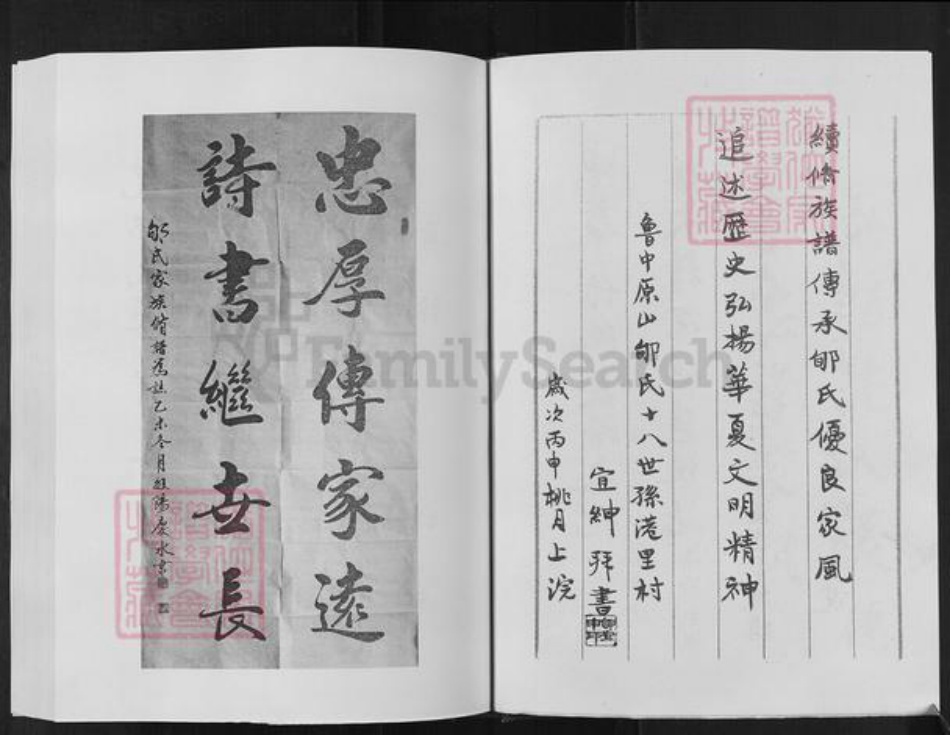 續修族譜傳承郇氏優良家風
追述歷史弘揚華夏文明精神
魯中原山郇氏十八世孫港里村
宜紳拜書
歲次丙申桃月上浣
忠厚傳家遠
詩書繼世長
郇氏家族脩譜為誌乙未冬月
慶水書
FamilySearch